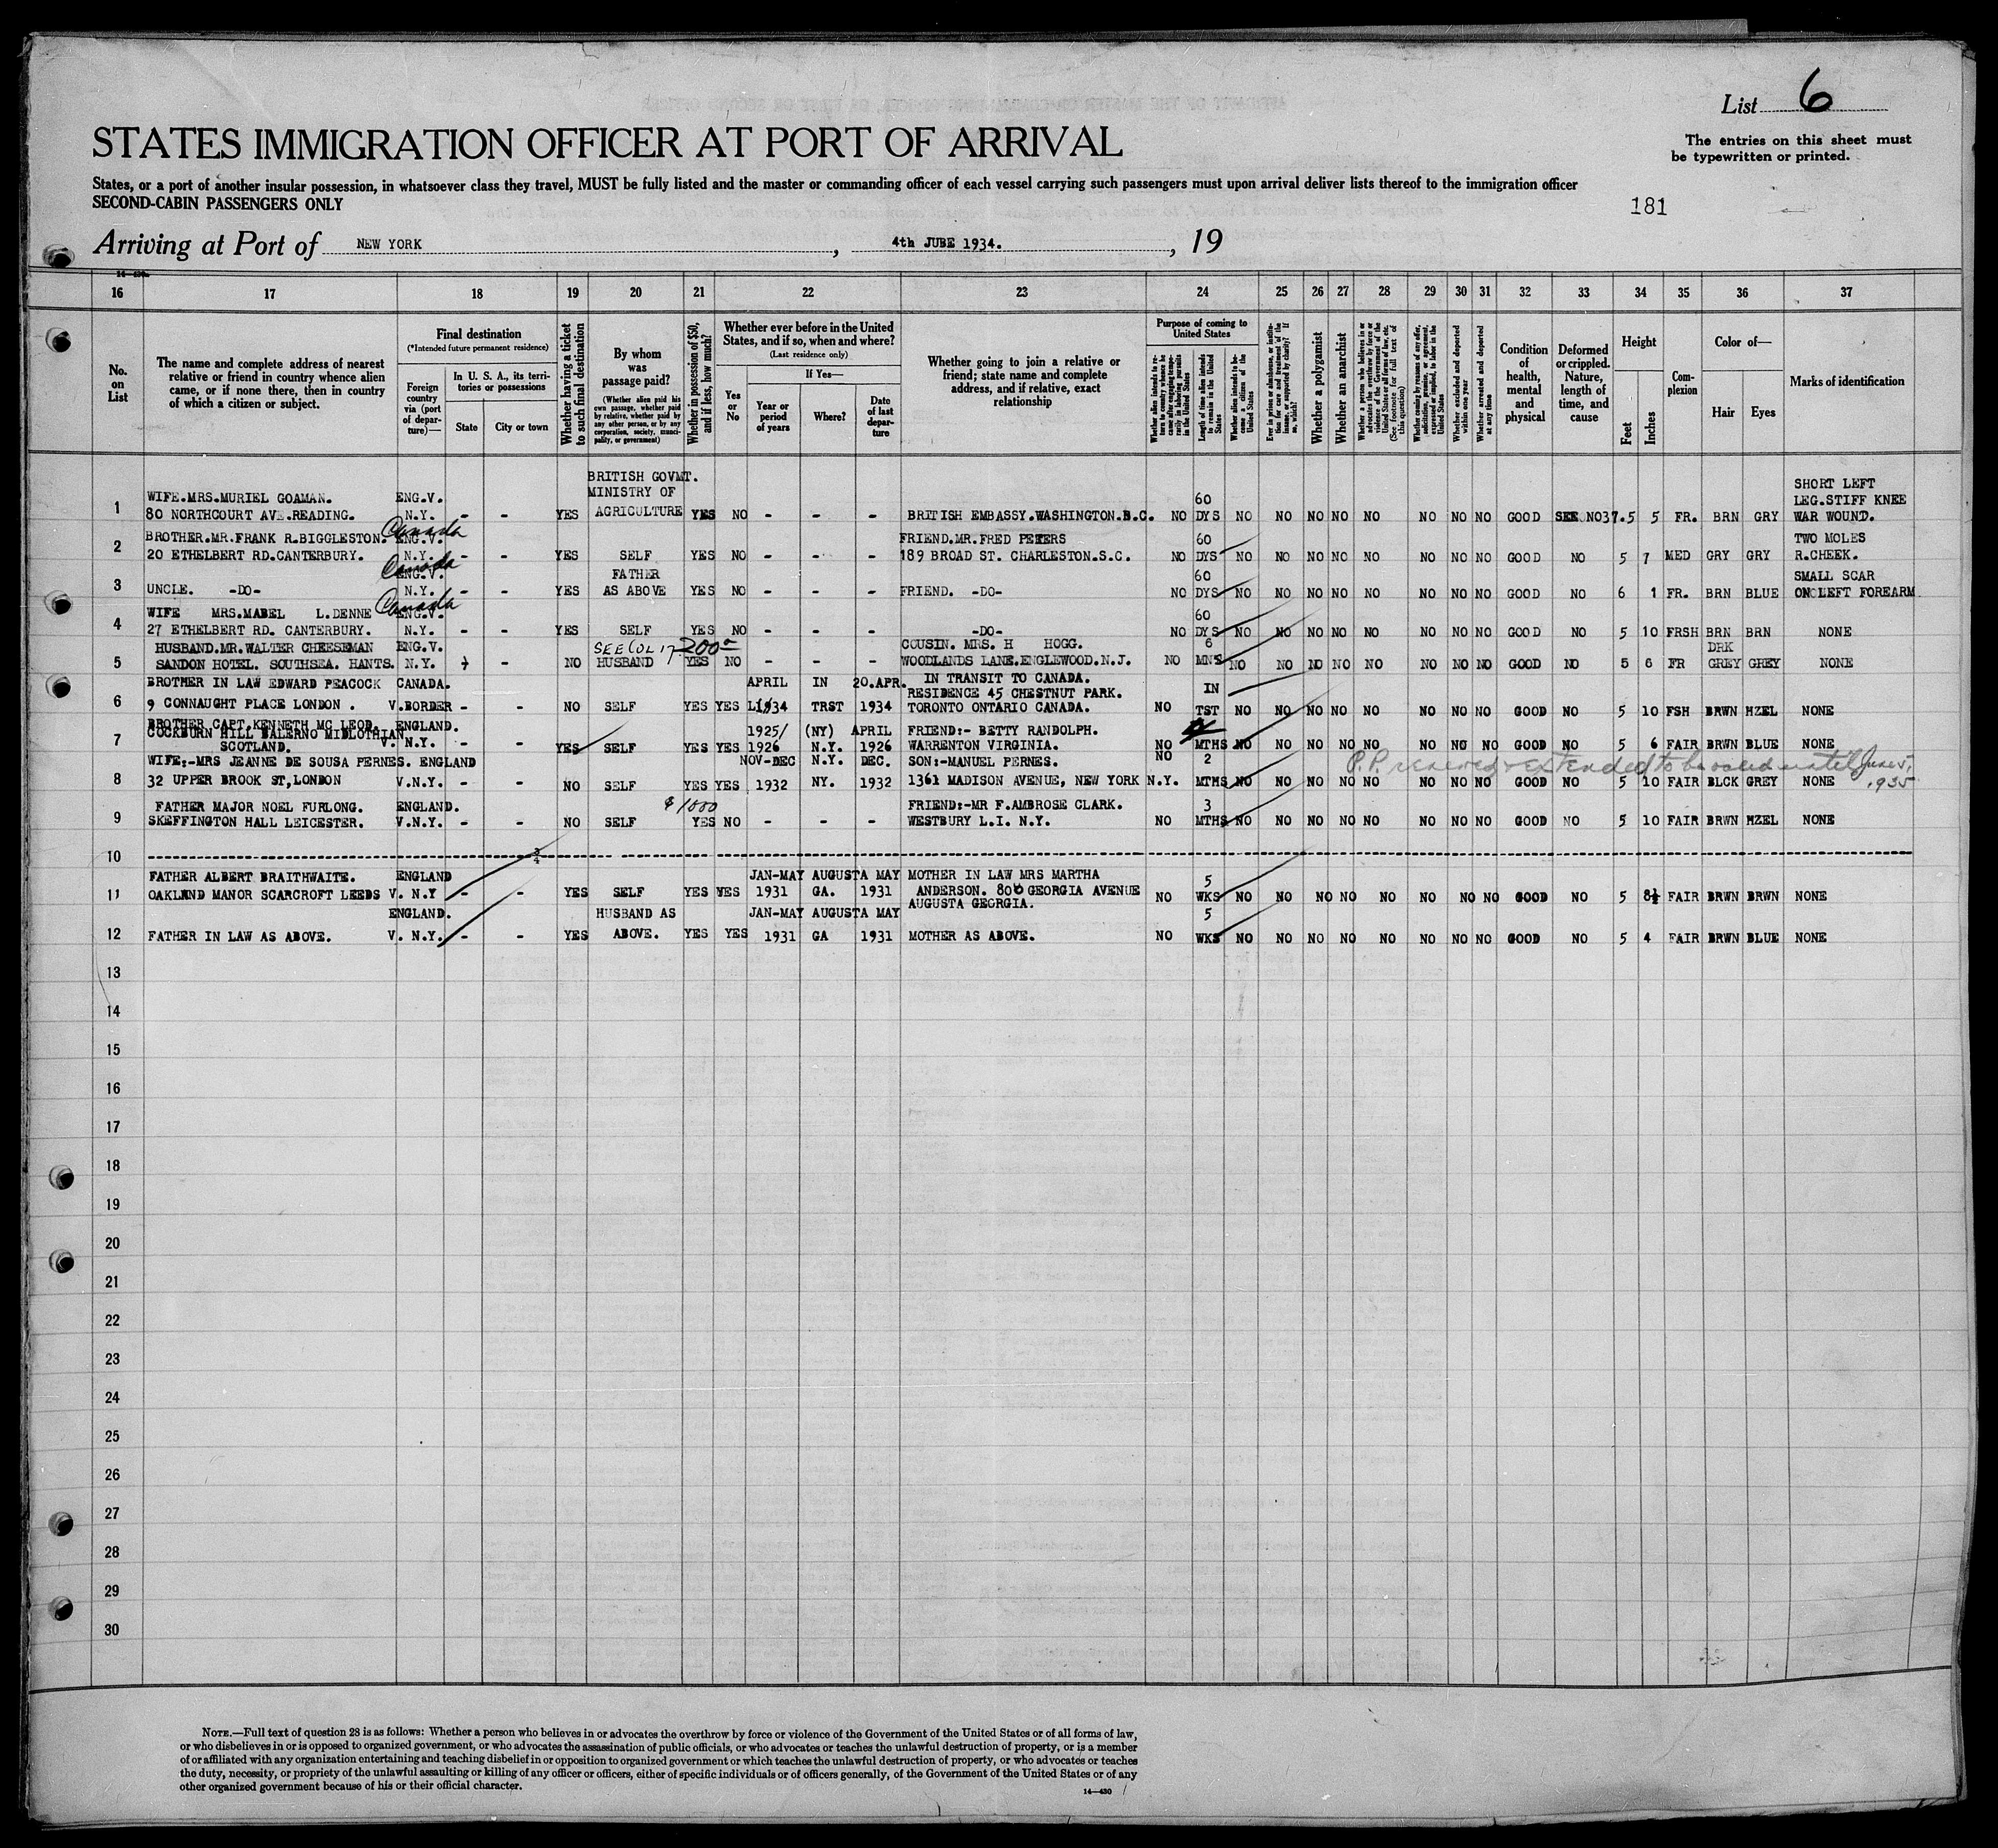 List 6
STATES IMMIGRATION OFFICER AT PORT OF ARRIVAL
The entries on this sheet must
be typewritten or printed.
States, or a port of another insular possession, in whatsoever class they travel, MUST be fully listed and the master or commanding officer of each vessel carrying such passengers must upon arrival deliver lists thereof to the immigration officer
SECOND-CABIN PASSENGERS ONLY
181
Arriving at Port of NEW YORK, 4th JUBE 1934., 19
16 17 18 19 20 21 22 23 24 25 26 27 28 29 30 31 32 33 34 35 36 37
No. on List
The name and complete address of nearest
relative or friend in country whence alien
came, or if none there, then in country
of which a citizen or subject.
Final destination
(*Intended future permanent residence)
Foreign country via (port of departure)—
In U. S. A., its territories or possessions
State
City or town
Whether having a ticket to such final destination
By whom was passage paid?
(Whether alien paid his own passage, whether paid by relative, whether paid by any other person, or by any corporation, society, municipality, or government)
Whether in possession of $50, and if less, how much?
Whether ever before in the United States, and if so, when and where?
(Last residence only)
Yes or No
If Yes—
Year or period of years
Where?
Date of last departure
Whether going to join a relative or
friend; state name and complete
address, and if relative, exact
relationship
Purpose of coming to United States
Length of time alien intends to remain in the United States
Whether alien intends to become a citizen of the United States
Whether a polygamist
Whether an anarchist
Whether excluded and deported within one year
Whether arrested and deported at any time
Condition of health, mental and physical
Deformed or crippled. Nature, length of time, and cause
Height
Feet
Inches
Complexion
Color of—
Hair
Eyes
Marks of identification
BRITISH GOVMT. SHORT LEFT
WIFE.MRS.MURIEL GOAMAN. ENG.V. MINISTRY OF 60 LEG.STIFF KNEE
1 80 NORTHCOURT AVE.READING. N.Y. - - YES AGRICULTURE YES NO - - - BRITISH EMBASSY.WASHINGTON.D.C. NO DYS NO NO NO NO NO NO NO NO GOOD SEE NO37. 5 5 FR. BRN GRY WAR WOUND.
Canada
BROTHER.MR.FRANK R.BIGGLESTON. ENG.V. FRIEND.MR.FRED PETERS 60 TWO MOLES
2 20 ETHELBERT RD.CANTERBURY. N.Y. - - YES SELF YES NO - - - 189 BROAD ST. CHARLESTON.S.C. NO DYS NO NO NO NO NO NO NO NO GOOD NO 5 7 MED GRY GRY R.CHEEK.
Canada
ENG.V. FATHER 60 SMALL SCAR
3 UNCLE. -DO- N.Y. - - YES AS ABOVE YES NO - - - FRIEND. -DO- NO DYS NO NO NO NO NO NO NO NO GOOD NO 6 1 FR. BRN BLUE ON LEFT FOREARM
Canada
WIFE MRS.MABEL L.DENNE ENG.V. 60
4 27 ETHELBERT RD. CANTERBURY. N.Y. - - YES SELF YES NO - - - -DO- NO DYS NO NO NO NO NO NO NO NO GOOD NO 5 10 FRSH BRN BRN NONE
HUSBAND.MR.WALTER CHEESEMAN ENG.V. SEE COL 17 200 COUSIN. MRS. H HOGG. 6 DRK
5 SANDON HOTEL. SOUTHSEA. HANTS. N.Y. - - NO HUSBAND YES NO - - - WOODLANDS LANE.ENGLEWOOD.N.J. NO MNS NO NO NO NO NO NO NO NO GOOD NO 5 6 FR GREY GREY NONE
BROTHER IN LAW EDWARD PEACOCK CANADA. APRIL IN 20.APR. IN TRANSIT TO CANADA.
RESIDENCE 45 CHESTNUT PARK. IN
6 9 CONNAUGHT PLACE LONDON . V.BORDER - - NO SELF YES YES 1934 TRST 1934 TORONTO ONTARIO CANADA. NO TST NO NO NO NO NO NO NO NO GOOD NO 5 10 FSH BRWN HZEL NONE
BROTHER CAPT.KENNETH MC LEOD. ENGLAND. 1925/ (NY) APRIL FRIEND:- BETTY RANDOLPH. 2
COCKBURN HILL BALERNO MIDLOTHIAN
7 SCOTLAND. V. N.Y. - - YES SELF YES YES 1926 N.Y. 1926 WARRENTON VIRGINIA. NO MTHS NO NO NO NO NO NO NO NO GOOD NO 5 6 FAIR BRWN BLUE NONE
WIFE:-MRS JEANNE DE SOUSA PERNES. ENGLAND NOV-DEC N.Y. DEC. SON:-MANUEL PERNES. NO 2 P.P. renewed & extended to be valid until June 5, 1935
8 32 UPPER BROOK ST,LONDON V.N.Y. - - NO SELF YES YES 1932 NY. 1932 1361 MADISON AVENUE, NEW YORK N.Y. MTHS NO NO NO NO NO NO NO NO GOOD NO 5 10 FAIR BLCK GREY NONE
FATHER MAJOR NOEL FURLONG. ENGLAND. $1000 FRIEND:-MR F.AMBROSE CLARK. 3
9 SKEFFINGTON HALL LEICESTER. V.N.Y. - - NO SELF YES NO - - - WESTBURY L.I. N.Y. NO MTHS NO NO NO NO NO NO NO NO GOOD NO 5 10 FAIR BRWN HZEL NONE
10 3/4
FATHER ALBERT BRAITHWAITE. ENGLAND JAN-MAY AUGUSTA MAY MOTHER IN LAW MRS MARTHA 5
11 OAKLAND MANOR SCARCROFT LEEDS V. N.Y - - YES SELF YES YES 1931 GA. 1931 ANDERSON. 806 GEORGIA AVENUE NO WKS NO NO NO NO NO NO NO NO GOOD NO 5 8½ FAIR BRWN BRWN NONE
AUGUSTA GEORGIA.
ENGLAND. HUSBAND AS JAN-MAY AUGUSTA MAY 5
12 FATHER IN LAW AS ABOVE. V. N.Y. - - YES ABOVE. YES YES 1931 GA 1931 MOTHER AS ABOVE. NO WKS NO NO NO NO NO NO NO NO GOOD NO 5 4 FAIR BRWN BLUE NONE
13
14
15
16
17
18
19
20
21
22
23
24
25
26
27
28
29
30
NOTE.—Full text of question 28 is as follows: Whether a person who believes in or advocates the overthrow by force or violence of the Government of the United States or of all forms of law,
or who disbelieves in or is opposed to organized government, or who advocates the assassination of public officials, or who advocates or teaches the unlawful destruction of property, or is a member
of or affiliated with any organization entertaining and teaching disbelief in or opposition to organized government or which teaches the unlawful destruction of property, or who advocates or teaches
the duty, necessity, or propriety of the unlawful assaulting or killing of any officer or officers, either of specific individuals or of officers generally, of the Government of the United States or of any
other organized government because of his or their official character.
14—430